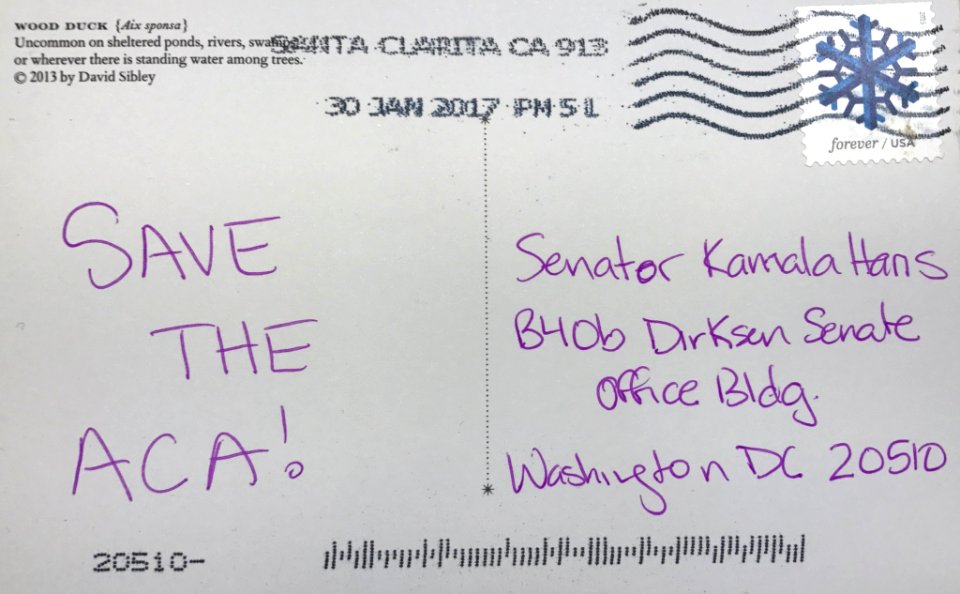 WOOD DUCK {Aix sponsa}
Uncommon on sheltered ponds, rivers, swamps
or wherever there is standing water among trees.
© 2013 by David Sibley
SANTA CLARITA CA 913
30 JAN 2017 PM 5 L
forever / USA
SAVE
THE
ACA!
Senator Kamala Harris
B40b Dirksen Senate
Office Bldg.
Washington DC 20510
20510-